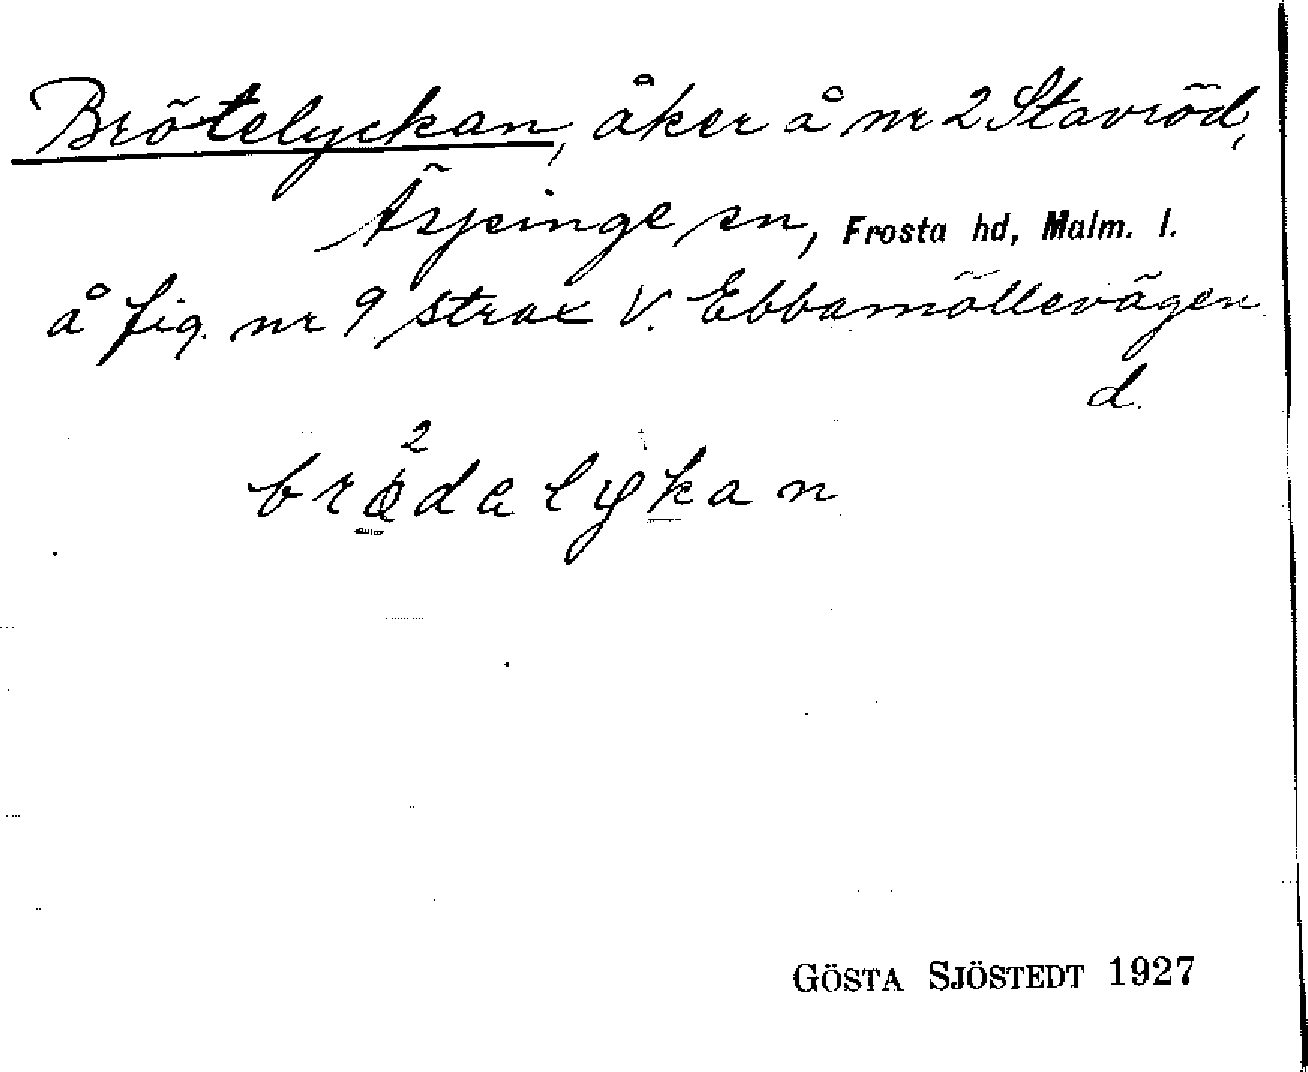 Brötelyckan, åker å nr 2 Stavröd,
Äspinge sn, Frosta hd, Malm. l.
å fig. nr 9 strax V. Ebbamöllevägen
d.
2
brödalykan
GÖSTA SJÖSTEDT 1927